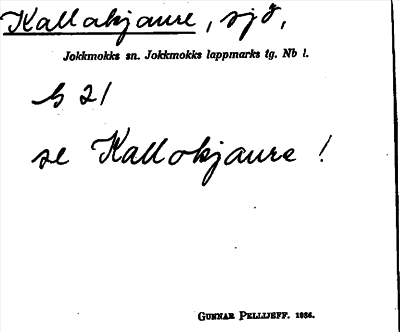 Kallakjaure, sjö,
Jokkmokks sn. Jokkmokks lappmarks tg. Nb l.
b 21
se Kallokjaure!
GUNNAR PELLIJEFF. 1986.